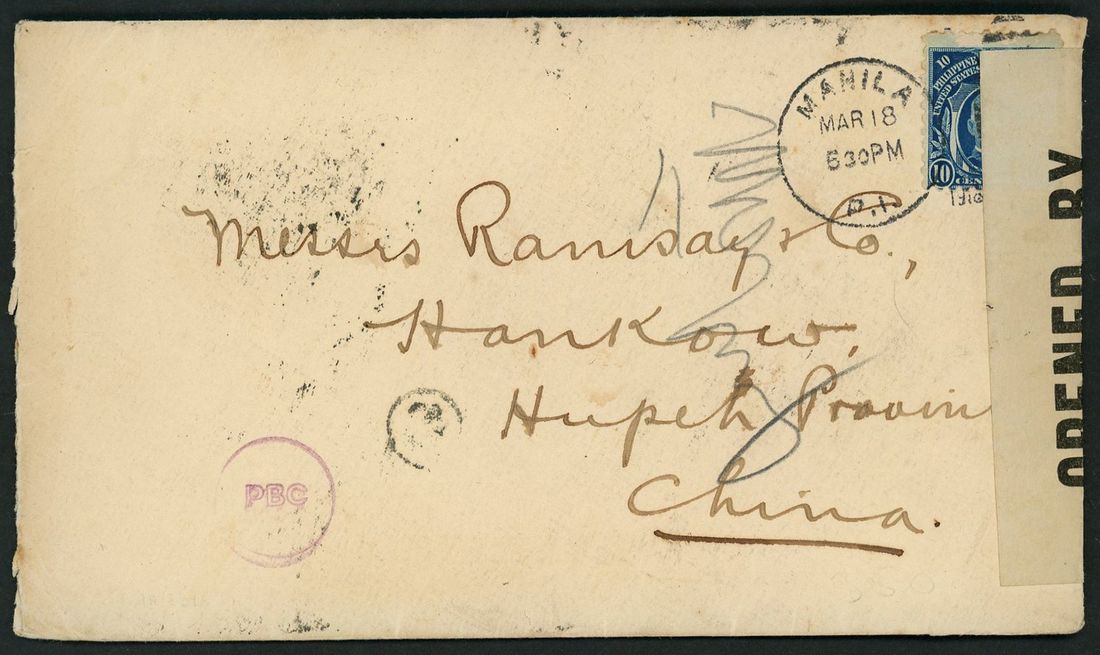 MANILA
MAR 18
630 PM
P.I.
10
PHILIPPINE
UNITED STATES
10
CEN
1918
Messrs Ramsay & Co.,
Hankow,
Hupeh Provin
China.
PBC
OPENED BY